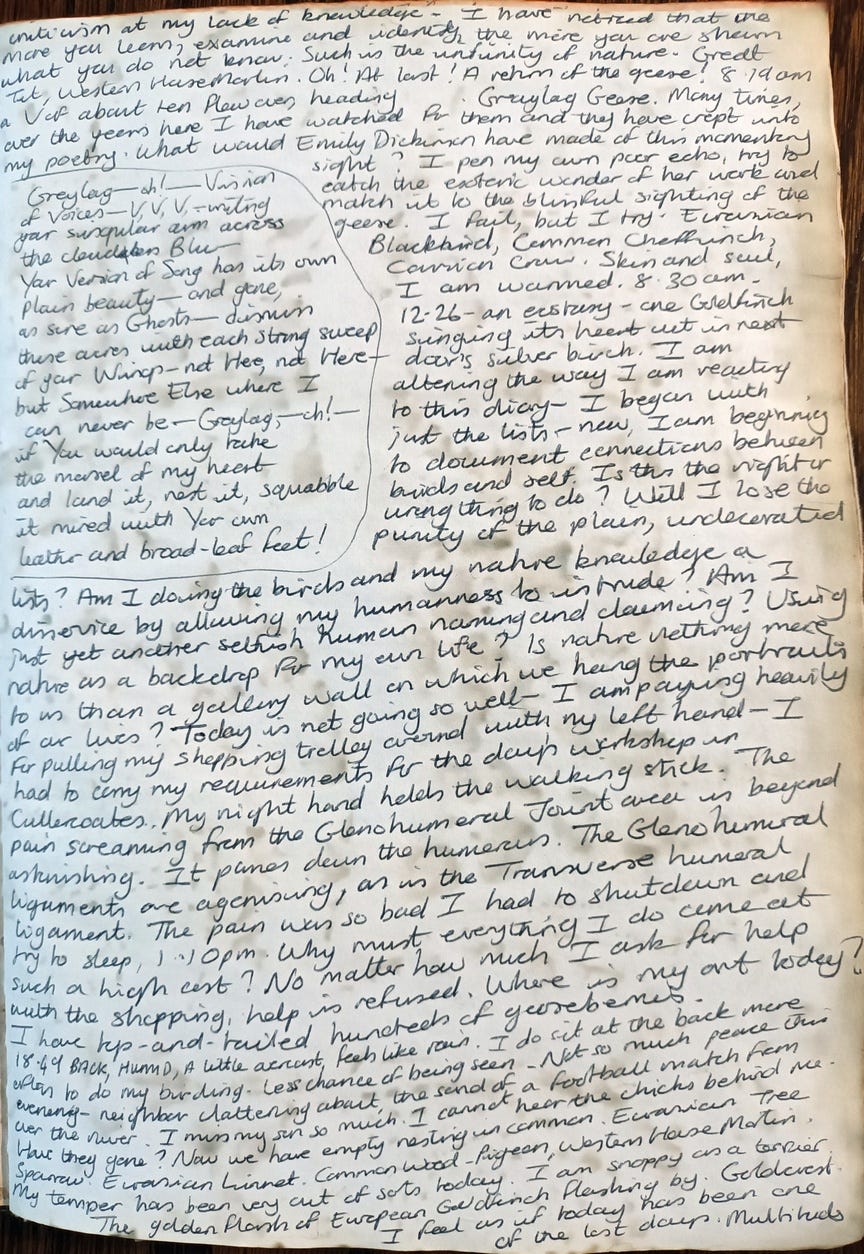 criticism at my lack of knowledge - I have noticed that the
more you learn, examine and identify the more you are shown
what you do not know. Such is the infinity of nature. Great
Tit, Western House Martin. Oh! At last! A return of the geese! 8.19am
a V of about ten flew over, heading . Greylag Geese. Many times,
over the years here I have watched for them and they have crept into
my poetry. What would Emily Dickinson have made of this momentary
sight? I pen my own poor echo, try to
catch the esoteric wonder of her work and
match it to the blissful sighting of the
geese. I fail, but I try. Eurasian
Blackbird, Common Chaffinch,
Carrion Crow. Skin and soul,
I am warmed. 8.30am.
12.26 - an ecstasy - one Goldfinch
singing its heart out in next
door's silver birch. I am
altering the way I am reacting
to this diary - I began with
just the lists - now, I am beginning
to document connections between
birds and self. Is this the right or
wrong thing to do? Will I lose the
purity of the plain, undecorated
Greylag — oh! — Vision
of Voices — V, V, V, — writing
your singular arm across
the cloudless Blue —
Your Version of Song has its own
Plain beauty — and gone,
as sure as Ghosts — dismiss
these acres with each strong sweep
of your Wings — not Hee, not Here —
but Somewhere Else where I
can never be — Greylag, — oh! —
if You would only take
the morsel of my heart
and land it, nest it, squabble
it mired with Your own
leather and broad-leaf feet!
lists? Am I doing the birds and my nature knowledge a
disservice by allowing my humanness to intrude? Am I
just yet another selfish human naming and claiming? Using
nature as a backdrop for my own life? Is nature nothing more
to us than a gallery wall on which we hang the portraits
of our lives? Today is not going so well - I am paying heavily
for pulling my shopping trolley around with my left hand - I
had to carry my requirements for the day's workshop in
Cullercoates. My right hand holds the walking stick. The
pain screaming from the Glenohumeral Joint area is beyond
astonishing. It pones down the humerus. The Glenohumeral
ligaments are agonising, as is the Transverse humeral
ligament. The pain was so bad I had to shutdown and
try to sleep, 1.10pm. Why must everything I do come at
such a high cost? No matter how much I ask for help
with the shopping, help is refused. Where is my out today?
I have top-and-tailed hundreds of gooseberries.
18.49 BACK, HUMID, A little overcast, feels like rain. I do sit at the back more
often to do my birding. Less chance of being seen - Not so much peace this
evening - neighbor clattering about, the sound of a football match from
over the river. I miss my son so much. I cannot hear the chicks behind me.
Have they gone? Now we have empty nesting in common. Eurasian Tree
Sparrow. Eurasian Linnet. Common Wood-Pigeon, Western House Martin.
My temper has been very out of sorts today. I am snappy as a terrier.
The golden flash of European Goldfinch flashing by. Goldcrest.
I feel as if today has been one
of the last days. Multitude